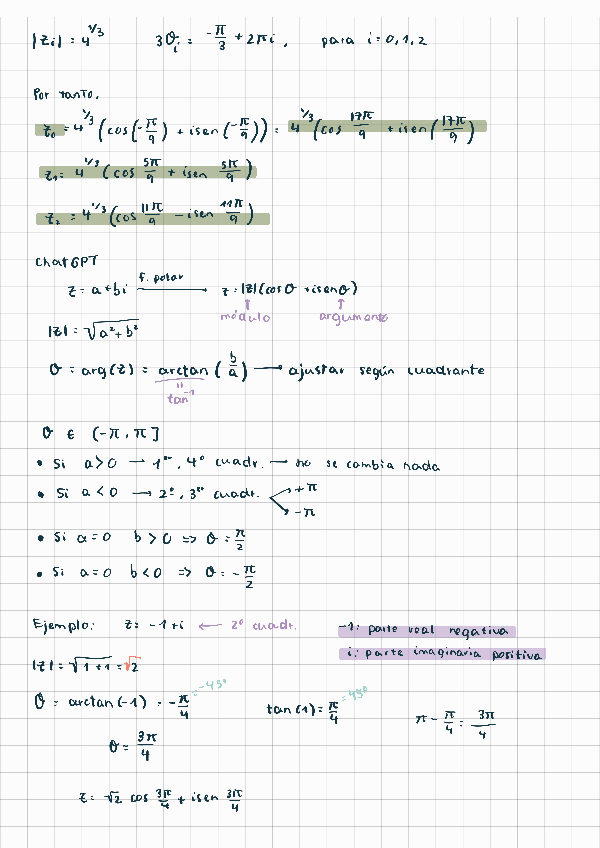 |z_i| = 4^{1/3}   3θ_i = -π/3 + 2πi, para i = 0, 1, 2
Por tanto,
z_0 = 4^{1/3} (cos(-π/9) + isen(-π/9)) = 4^{1/3} (cos 17π/9 + isen(17π/9)
z_1 = 4^{1/3} (cos 5π/9 + isen 5π/9)
z_2 = 4^{1/3} (cos 11π/9 - isen 11π/9)
ChatGPT
z = a+bi f. polar → z = |z| (cos θ + isen θ)
↑ módulo ↑ argumento
|z| = √(a² + b²)
θ = arg(z) = arctan (b/a) → ajustar según cuadrante
=
tan⁻¹
θ ∈ (-π, π]
• Si a > 0 → 1er, 4º cuadr. → no se cambia nada
• Si a < 0 → 2º, 3er cuadr. +π
-π
• Si a = 0 b > 0 => θ = π/2
• Si a = 0 b < 0 => θ = -π/2
Ejemplo: z = -1+i ← 2º cuadr. -1: parte real negativa
i: parte imaginaria positiva
|z| = √(1+1) = √2
θ = arctan(-1) = -π/4 = -45º tan(1) = π/4 = 45º π - π/4 = 3π/4
θ = 3π/4
z = √2 cos 3π/4 + isen 3π/4